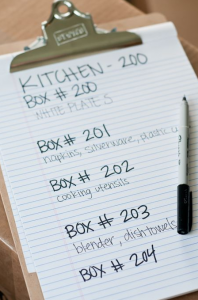 KITCHEN - 200
BOX # 200
WHITE PLATES
BOX # 201
napkins, silverware, plastic u
BOX # 202
cooking utensils
BOX # 203
blender, dish towels
BOX # 204